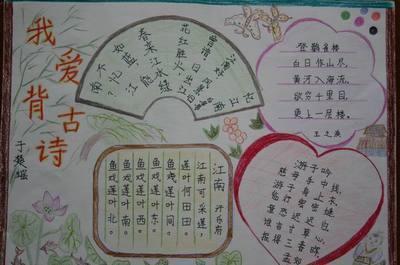 我爱背古诗
江南好，
风景旧曾谙。
日出江花红胜火，
春来江水绿如蓝。
不忆江南？
登鹳雀楼
白日依山尽，
黄河入海流。
欲穷千里目，
更上一层楼。
王之涣
江南 汉乐府
江南可采莲，
莲叶何田田。
鱼戏莲叶间。
鱼戏莲叶东。
鱼戏莲叶西。
鱼戏莲叶南。
鱼戏莲叶北。
游子吟
慈母手中线，
游子身上衣。
临行密密缝，
意恐迟迟归。
谁言寸草心，
报得三春晖。